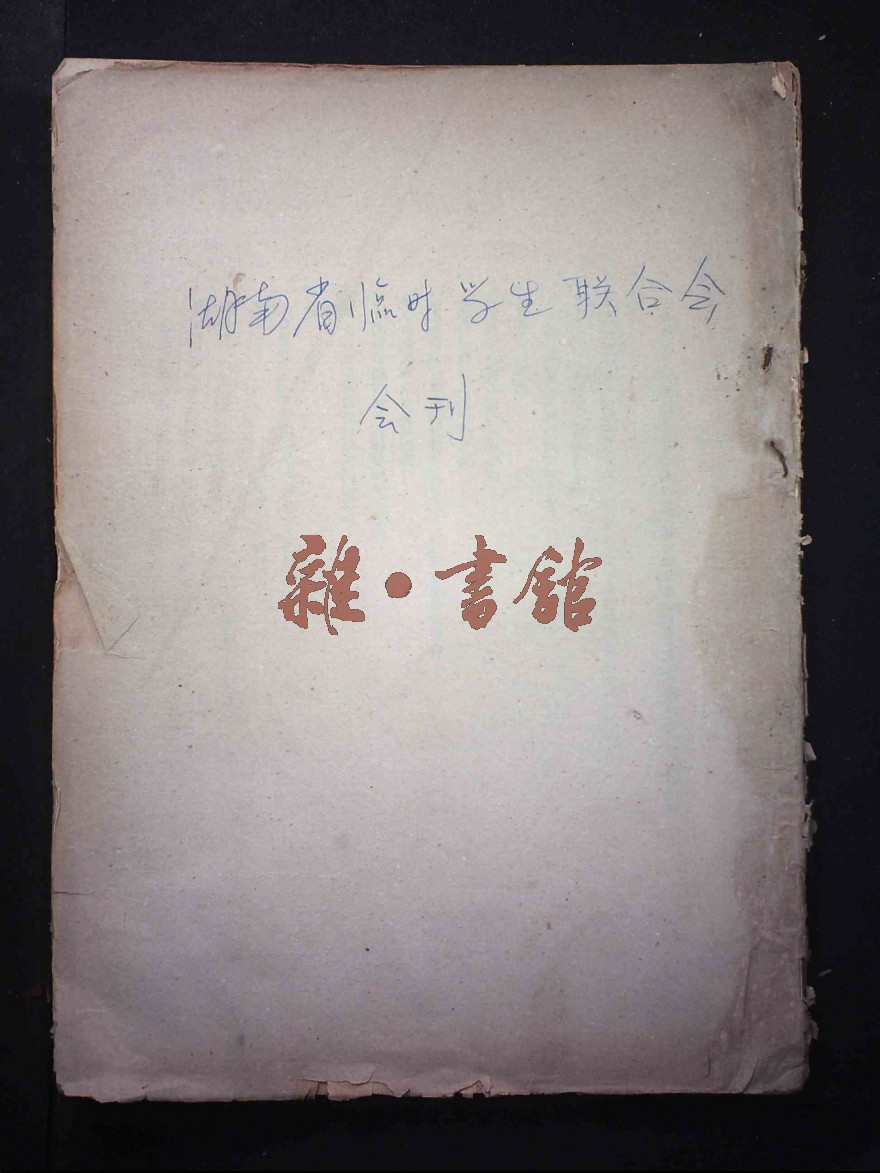 湖南省临时学生联合会
会刊
雜·書館